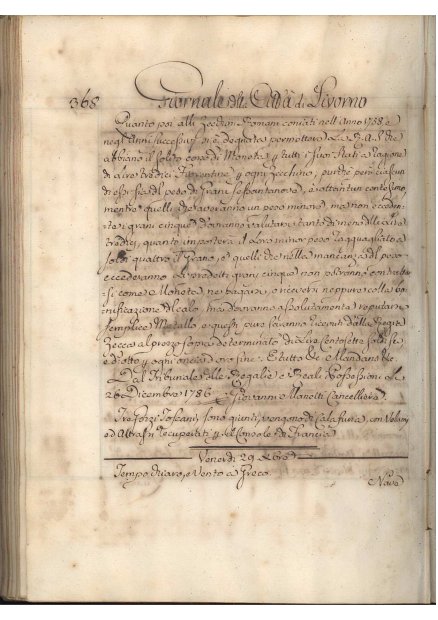 368 Giornale della Città di Livorno
Quanto poi alli Zecchini Romani coniati nell'Anno 1758, e
negl'Anni successivi si è degnata permettere La R. A. S. che
abbiano il solito corso di Moneta tutti i Suoi Stati a Ragione
di Lire tredici Fiorentine ogni Zecchino, purchè però ciascun
di essi sia del peso di Grani sessantanove, e
mentre quelli che averanno un peso minore ma non ecceden
te i grani cinque dovranno valutarsi tanto di meno delle Lire
tredici, quanto importerà il loro minor peso ragguagliato a
soldi quattro il Grano, e quelli che nella mancanza del peso
eccederanno li predetti grani cinque non potranno contrattar
si come Monete, nè pagarsi, o riceversi neppure colla bo
nificazione del calo, ma dovranno assolutamente reputarsi
semplice Metallo, e questi pure saranno ricevuti dalla Regia
Zecca al prezzo sopra determinato di Lire Centosette soldi se
e d'otto ogni oncia d'oro fine. Et tutto &c. Mandans &c.
Dal Tribunale delle Regalie, e Reali Possessioni li
26 Dicembre 1786. Giovanni Manetti Cancelliere
Tre Toscani, sono giunti, vengono di Calafuria, con
ed Altra il Console di Francia
Venerdì 29 Xbre
Tempo chiaro, e Vento a Greco.
Nave